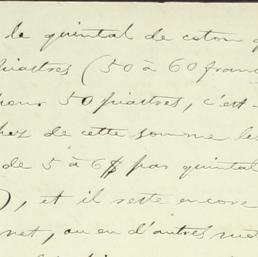 le quintal de coton q
piastres (50 à 60 franc
pour 50 piastres, c'est-
chez de cette somme les
de 5 à 6$ par quintal
), et il reste encore
net, ou en d'autres mot